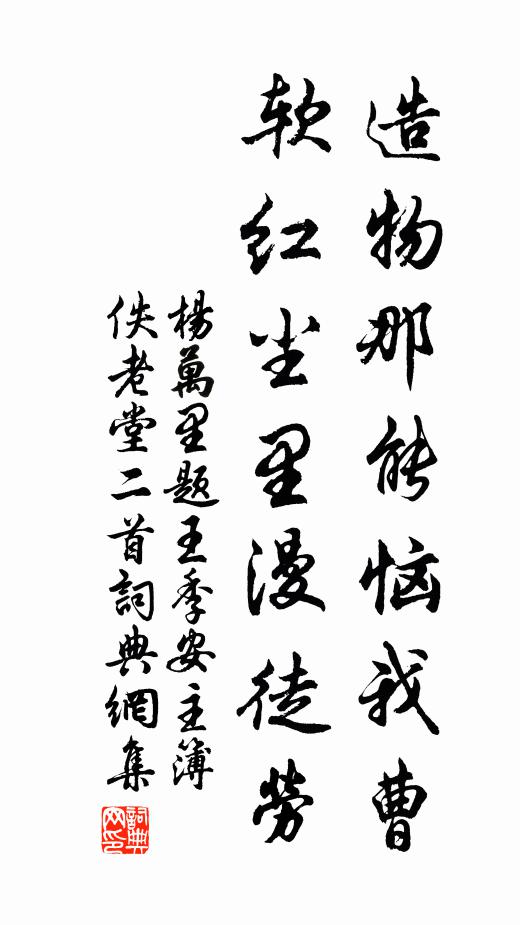 造物那能恼我曹
软红尘里漫徒劳
楊萬里题王季安主簿
佚老堂二首詞典網集
詞典网印